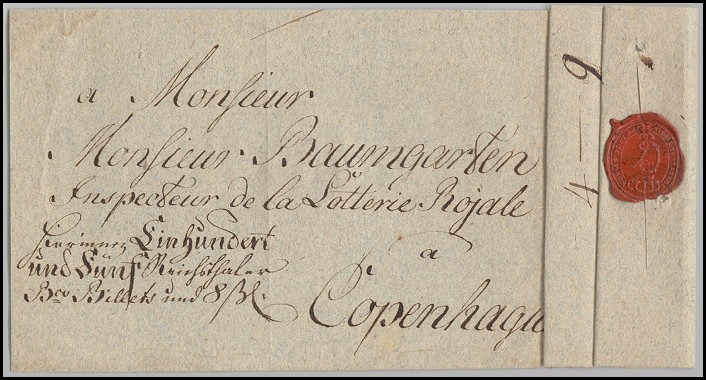 a Monsieur
Monsieur Baumgarten
Inspecteur de la Lotterie Rojale
a
Copenhague
hierinnen Einhundert
und Fünf Reichsthaler
Bco Billets und 8 ßl.
4 — 9